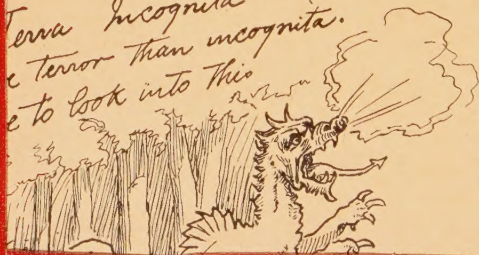 Terra Incognita
e terror than incognita.
e to look into this